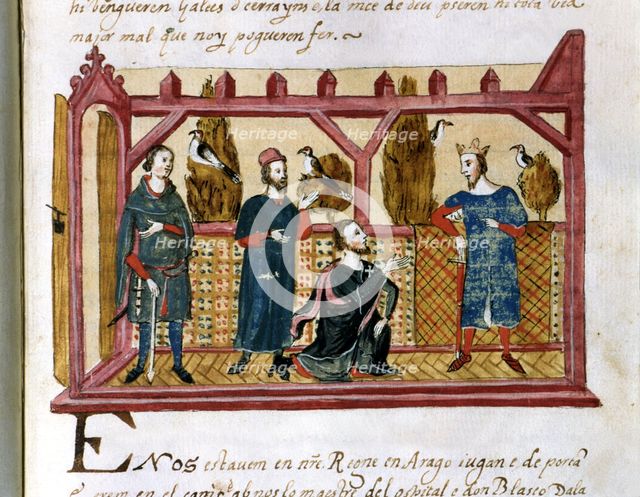 hi bengueren Galees d cerrayns e, la mce de deu pseren hi tota vea
major mal que noy pogueren fer.
Heritage
Heritage
Heritage
Heritage
Heritage
Heritage
Heritage
Heritage
Heritage
ENOS estauem en nr̃e Regne en Arago iugan e de porta
e erem en el camp ab nos lo maestre del ospital e don Blasco Dala